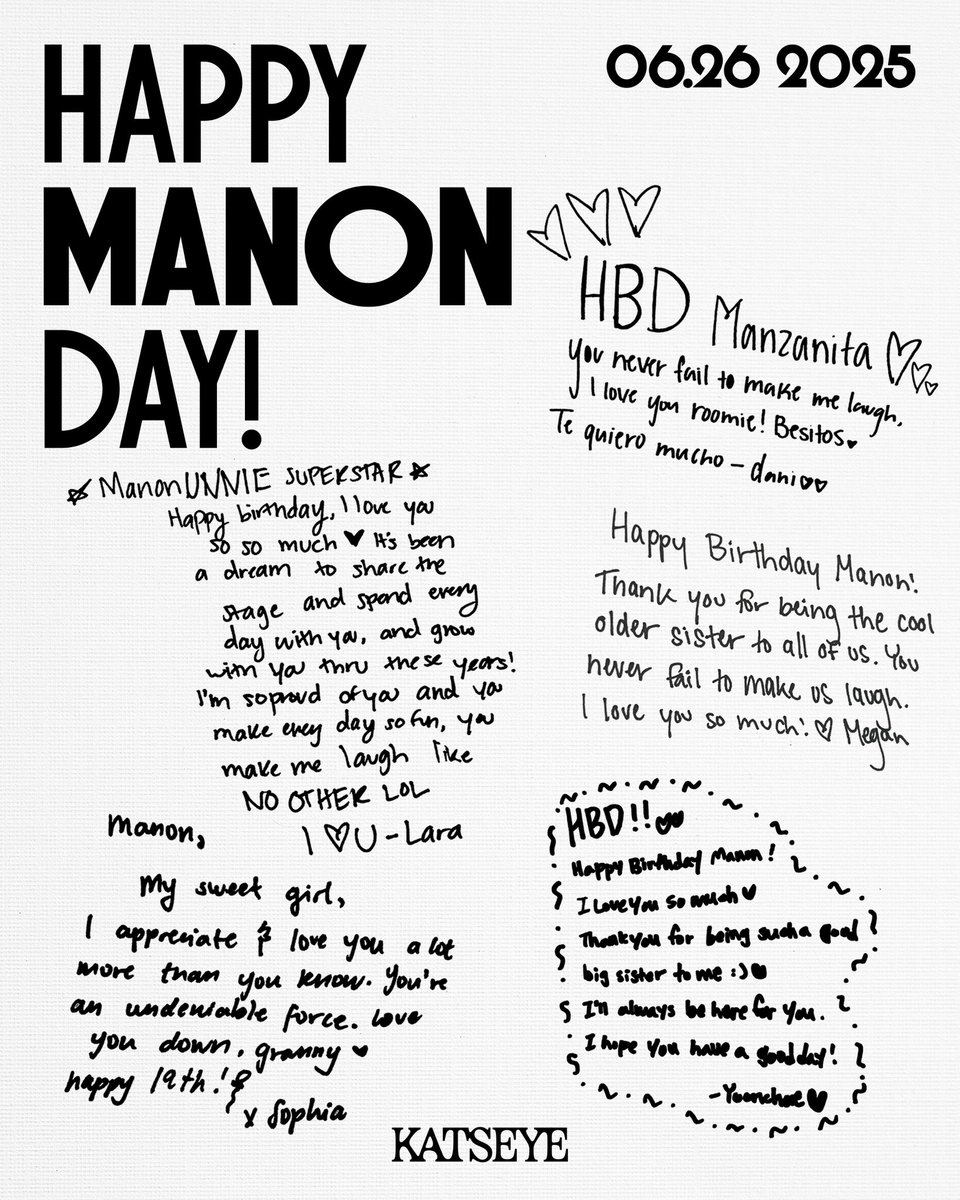 HAPPY
MANON
DAY!
06.26 2025
HBD Manzanita
you never fail to make me laugh,
I love you roomie! Besitos
Te quiero mucho - dani
Manon UNNIE SUPERSTAR
Happy birthday, I love you
so so much It's been
a dream to share the
stage and spend every
day with you, and grow
with you thru these years!
I'm so proud of you and you
make every day so fun, you
make me laugh like
NO OTHER LOL
I ♡ U - Lara
Happy Birthday Manon!
Thank you for being the cool
older sister to all of us. You
never fail to make us laugh.
I love you so much! ♡ Megan
Manon,
My sweet girl,
I appreciate & love you a lot
more than you know. You're
an undeniable force. love
you down, granny
happy 19th!
x Sophia
HBD!!
Happy Birthday Manon!
I Love You so much
Thank you for being such a good
big sister to me :)
I'll always be here for you.
I hope you have a good day!
- Yoonchae
KATSEYE